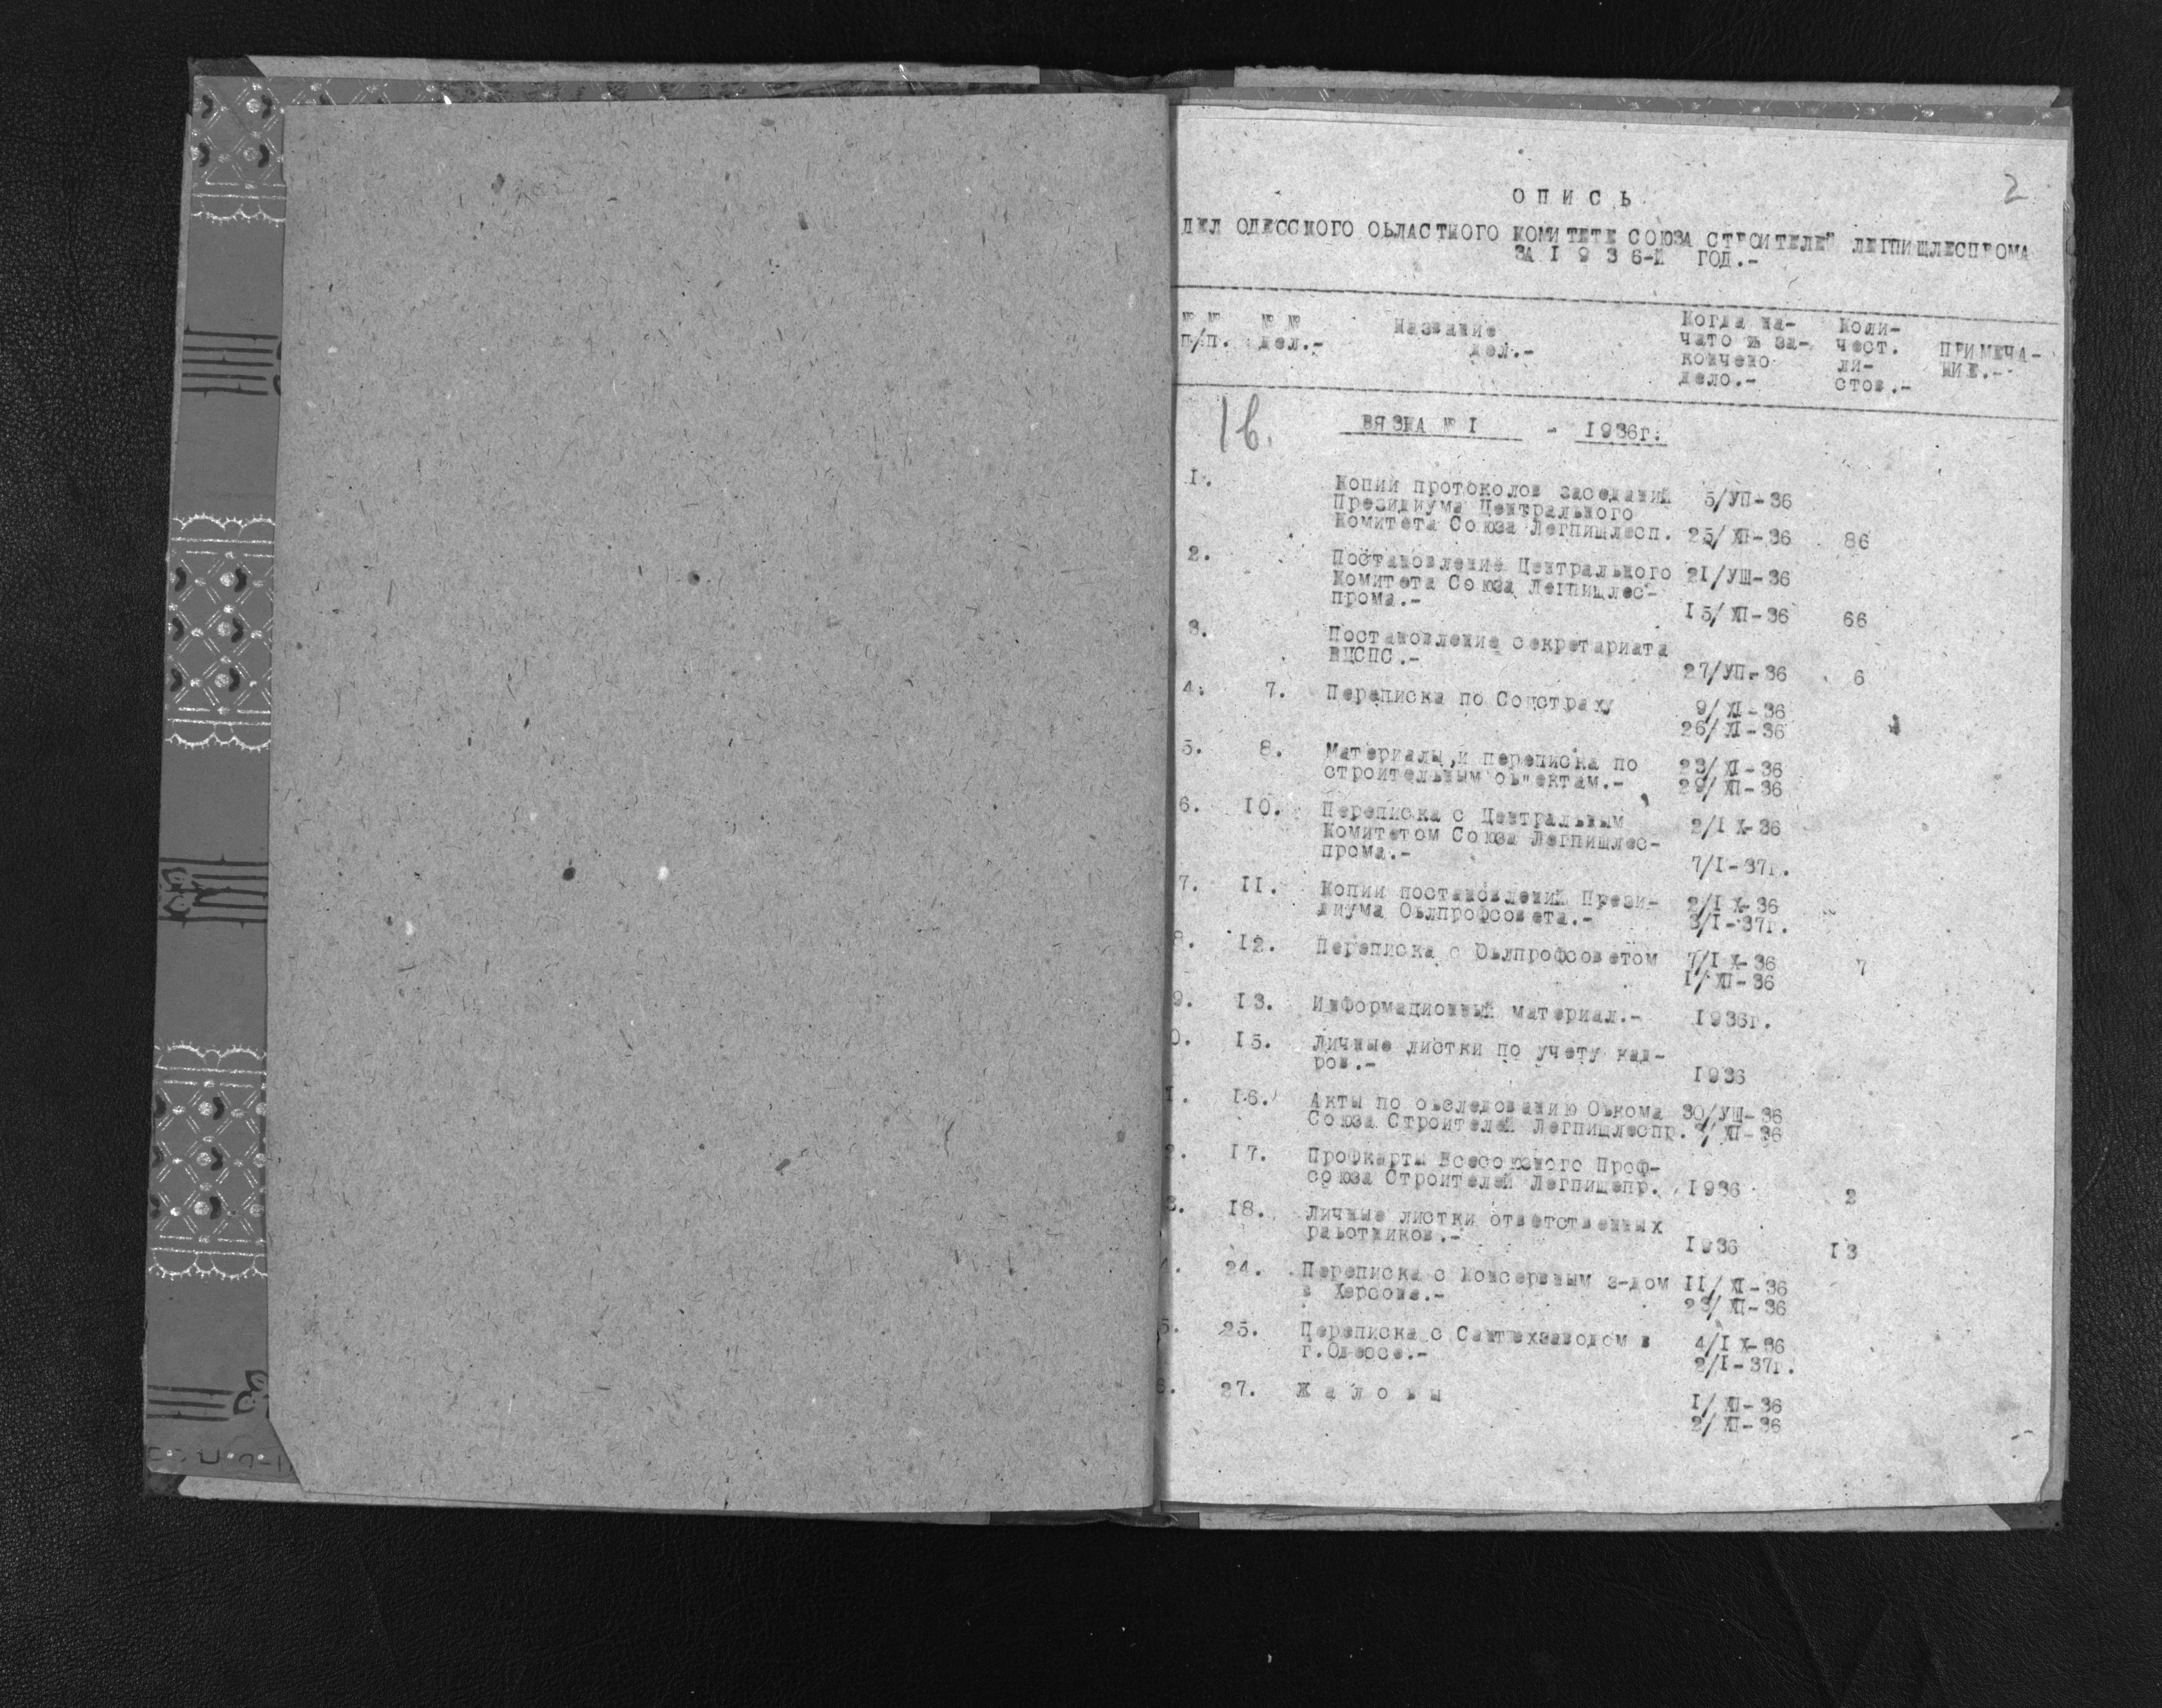 2
О П И С Ь
ДЕЛ ОДЕССКОГО ОЬЛАСТНОГО КОМИТЕТЕ СОЮЗА СТРОИТЕЛЕЙ ЛЕГПИЩЛЕСПРОМА
ЗА 1 9 3 6-Й ГОД.-
№ № п/п.
№ № дел.-
Название дел.-
Когда на-
чато и за-
кончено
дело.-
Коли-
чест.
ли-
стов.-
ПРИМЕЧА-
НИЕ.-
1 в.
ВЯЗКА № I - I936г.
I. Копии протоколов заседаний 5/УП-36
Президиума Центрального
Комитета Союза Легпищлесп. 25/ХП-36 86
2. Постановление Центрального 21/УШ-36
Комитета Союза Легпищлес-
прома.- I5/ХП-36 66
3. Постановление секретариата
ВЦСПС.- 27/УП-36 6
4. 7. Переписка по Соцстраху 9/XI-36
26/XI-36
5. 8. Материалы,и переписка по 23/XI-36
строительным оь"ектам.- 29/ХП-36
6. IO. Переписка с Центральным 2/IX-36
Комитетом Союза Легпищлес-
прома.- 7/I-37г.
7. II. Копии постановлений Прези- 2/IX-36
диума Оьлпрофсовета.- 3/I-37г.
8. I2. Переписка с Оьлпрофсоветом 7/IX-36 7
I/ХП-36
9. I3. Информационный материал.- I936г.
0. I5. Личные листки по учету кад-
ров.- I936
I. I6. Акты по оьследованию Оькома 30/УШ-36
Союза Строителей Легпищлеспр. /ХП-36
2. I7. Профкарты Всесоюзного Проф-
союза Строителей Легпищепр. I936 2
3. I8. Личные листки ответственных
раьотников.- I936 I3
4. 24. Переписка с Консервным з-дом II/XI-36
в Херсоне.- 23/ХП-36
5. 25. Переписка с Сантехзаводом в 4/IX-36
г.Одессе.- 2/I-37г.
6. 27. Ж а л о ь ы I/ХП-36
2/ХП-36